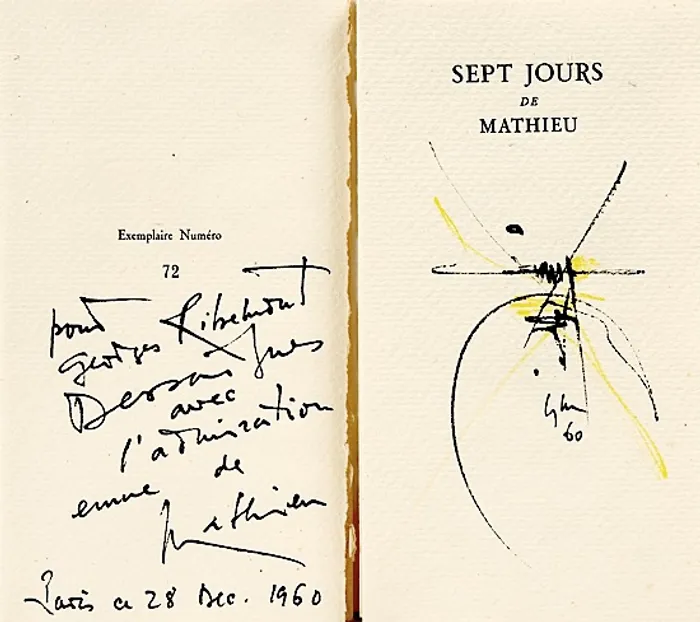 Exemplaire Numéro
72
pour
Georges Ribemont
Dessaignes
avec
l'admiration
émue de
Mathieu
Paris ce 28 Dec. 1960
SEPT JOURS
DE
MATHIEU
60